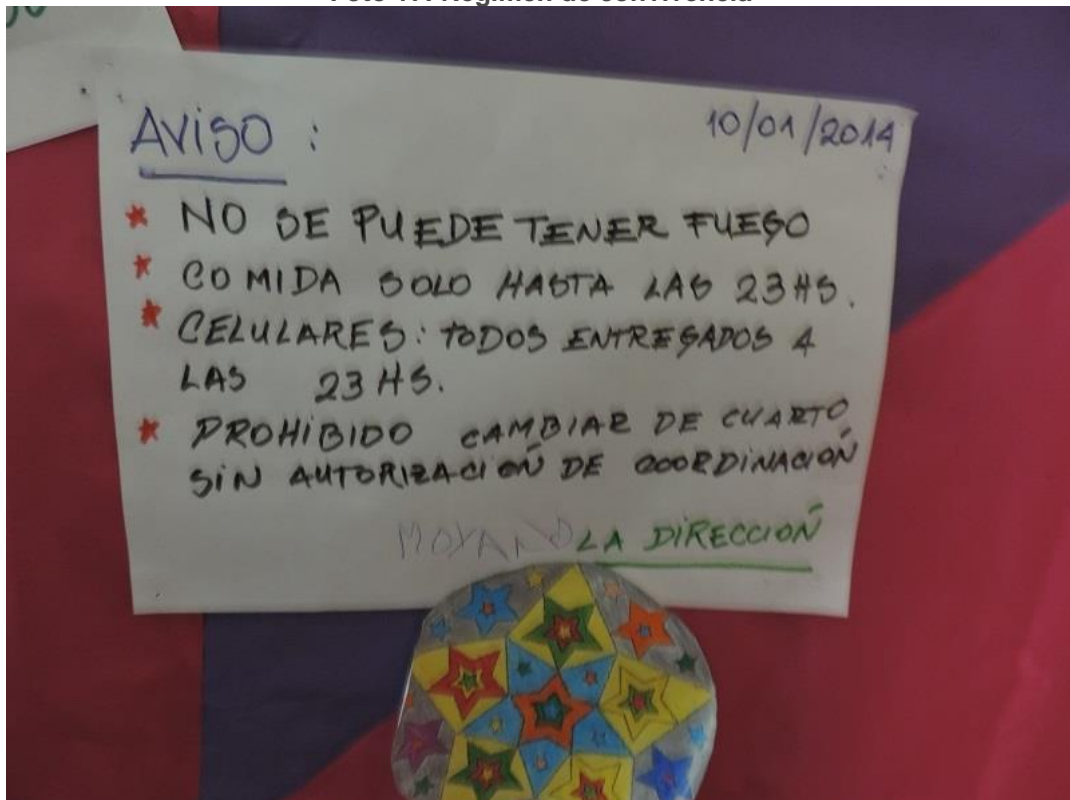 AVISO :
10/01/2014
* NO SE PUEDE TENER FUEGO
* COMIDA SOLO HASTA LAS 23 HS.
* CELULARES: TODOS ENTREGADOS A
LAS 23 HS.
* PROHIBIDO CAMBIAR DE CUARTO
SIN AUTORIZACIÓN DE COORDINACIÓN
LA DIRECCIÓN